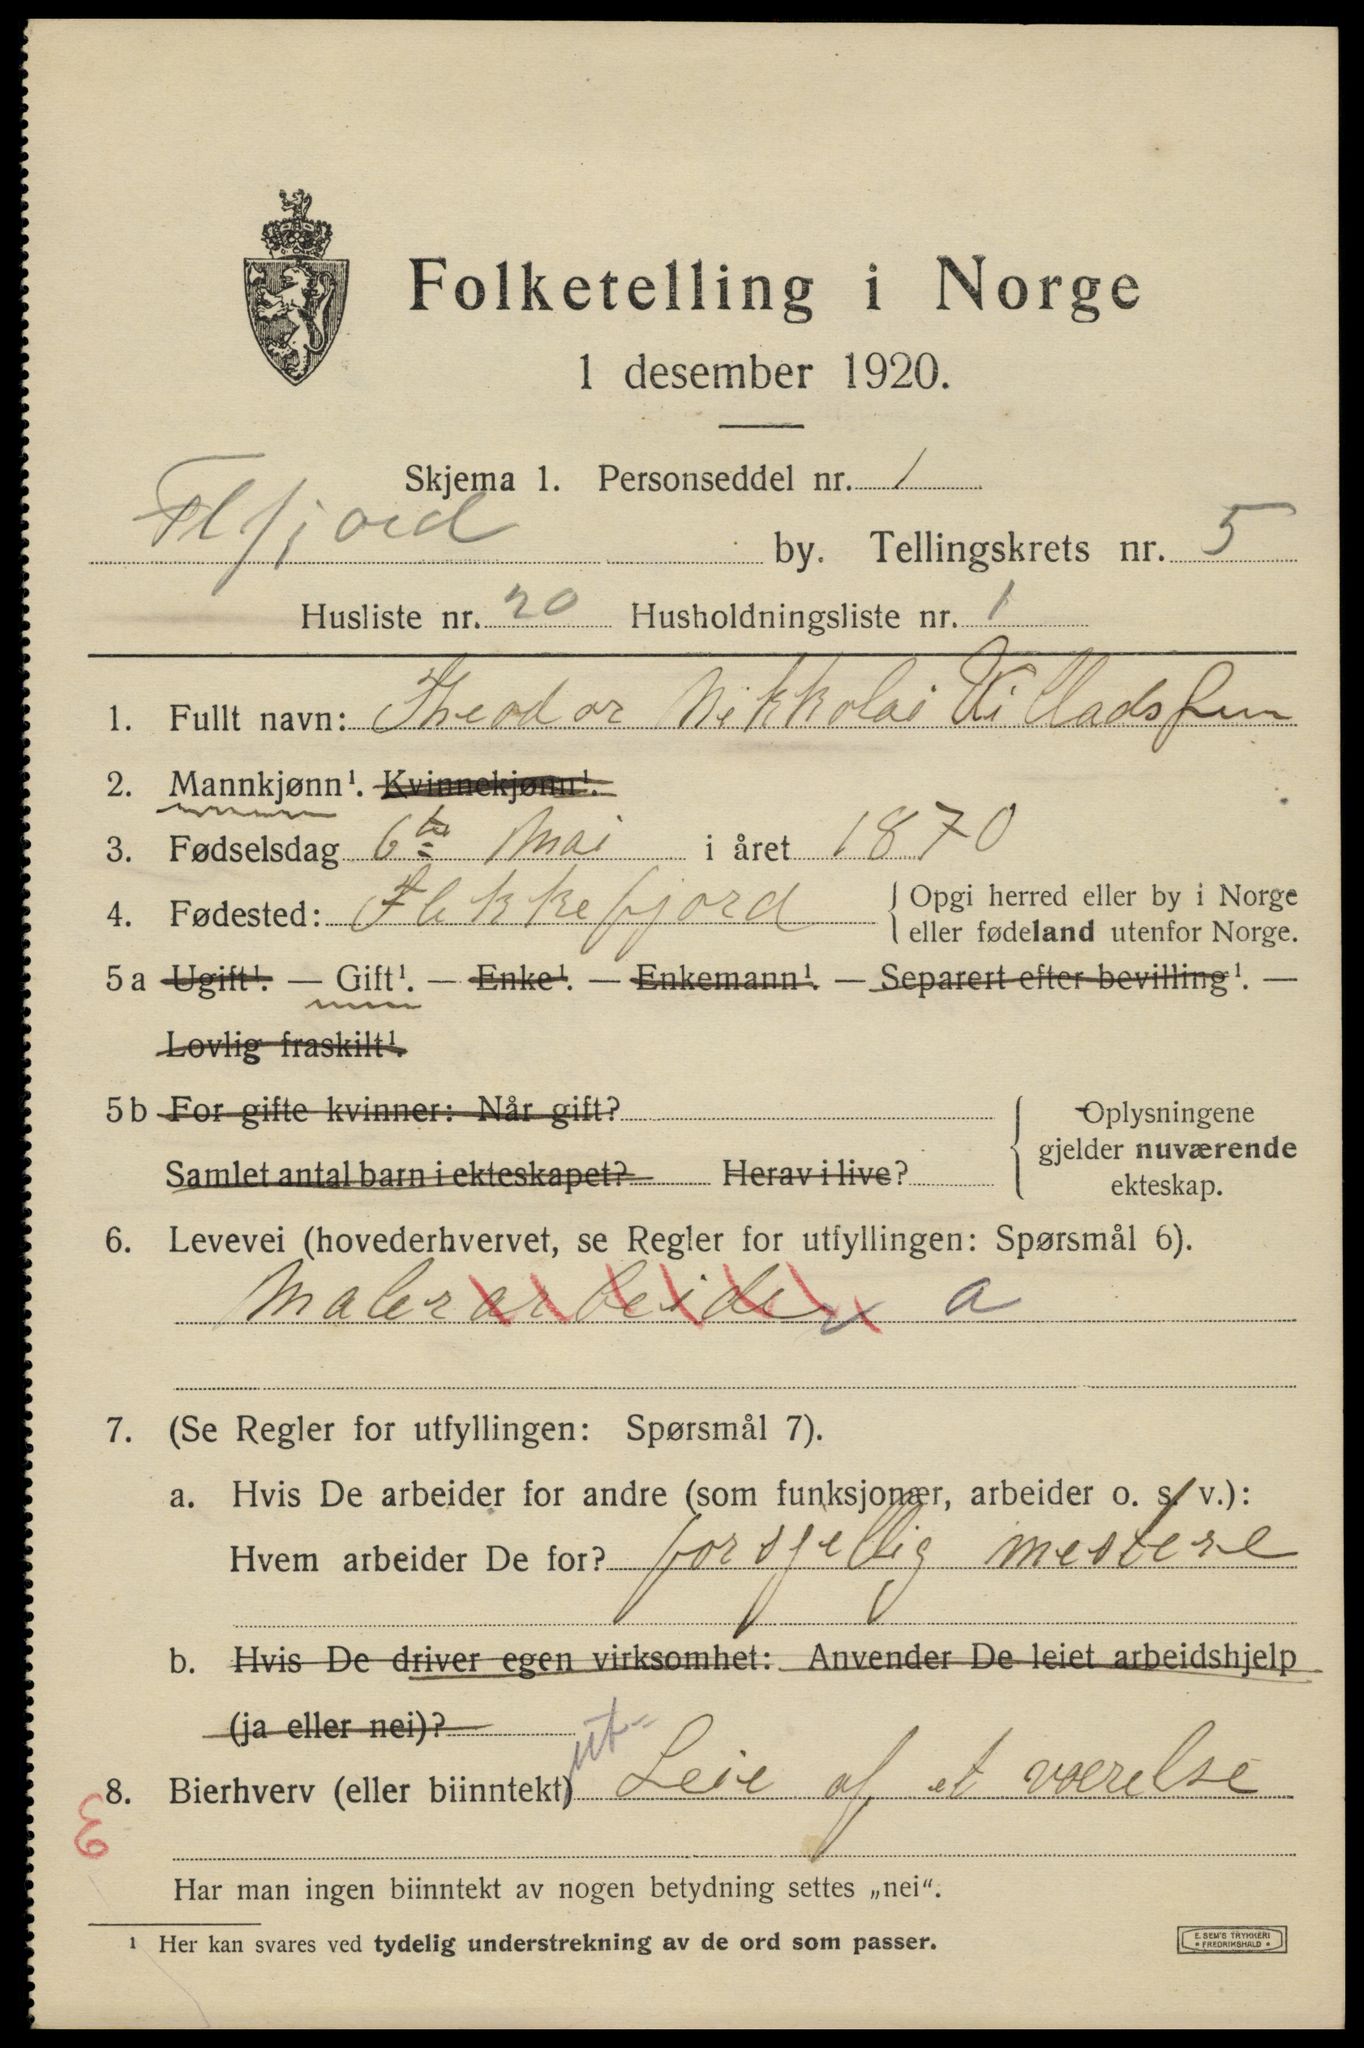 Folketelling i Norge
1 desember 1920.
Skjema 1. Personseddel nr. 1
Flfjord by. Tellingskrets nr. 5
Husliste nr. 20 Husholdningsliste nr. 1
1. Fullt navn: Theodor Nikkolai Killadsen
2. Mannkjønn¹. Kvinnekjønn¹.
3. Fødselsdag 6te Mai i året 1870
4. Fødested: Flekkefjord
Opgi herred eller by i Norge
eller fødeland utenfor Norge.
5a Ugift¹. — Gift¹. — Enke¹. — Enkemann¹. — Separert efter bevilling¹. —
Lovlig fraskilt¹.
5b For gifte kvinner: Når gift?
Samlet antal barn i ekteskapet? Herav i live?
Oplysningene
gjelder nuværende
ekteskap.
6. Levevei (hovederhvervet, se Regler for utfyllingen: Spørsmål 6).
Malerarbeider a
7. (Se Regler for utfyllingen: Spørsmål 7).
a. Hvis De arbeider for andre (som funksjonær, arbeider o. s. v.):
Hvem arbeider De for? forsjellig mestere
b. Hvis De driver egen virksomhet: Anvender De leiet arbeidshjelp
(ja eller nei)?
ut-
8. Bierhverv (eller biinntekt) Leie af et værelse
3
Har man ingen biinntekt av nogen betydning settes „nei“.
¹ Her kan svares ved tydelig understrekning av de ord som passer.
E. SEM'S TRYKKERI
FREDRIKSHALD